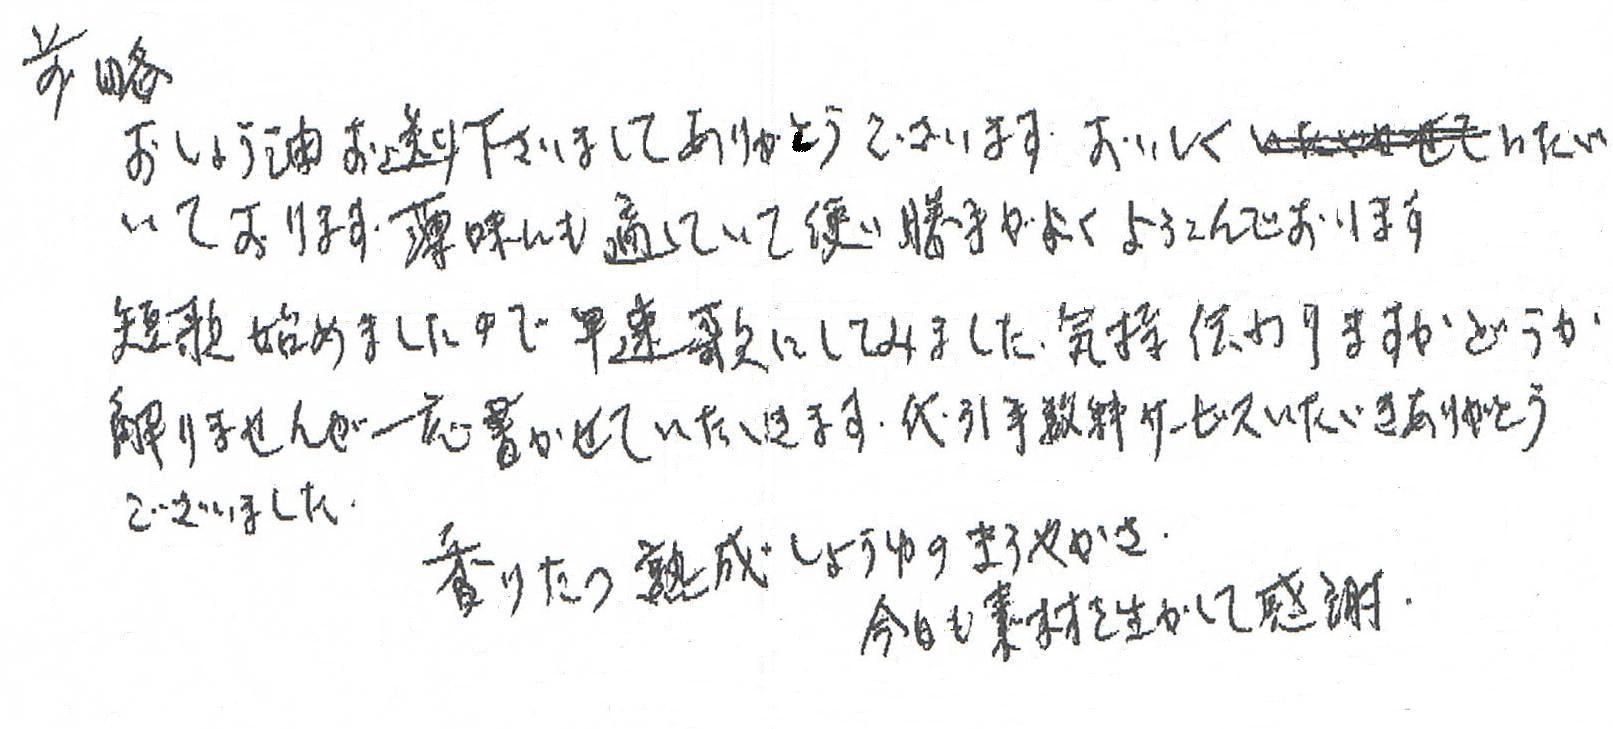 前略
おしょう油お送り下さいましてありがとうございます。おいしくいただ
いております。薄味にも適していて使い勝手がよくよろこんでおります
短歌始めましたので早速歌にしてみました。気持伝わりますかどうか
解りませんが一応書かせていただきます。代引手数料サービスいただきありがとう
ございました。
香りたつ熟成しょうゆのまろやかさ。
今日も素材を生かして感謝。